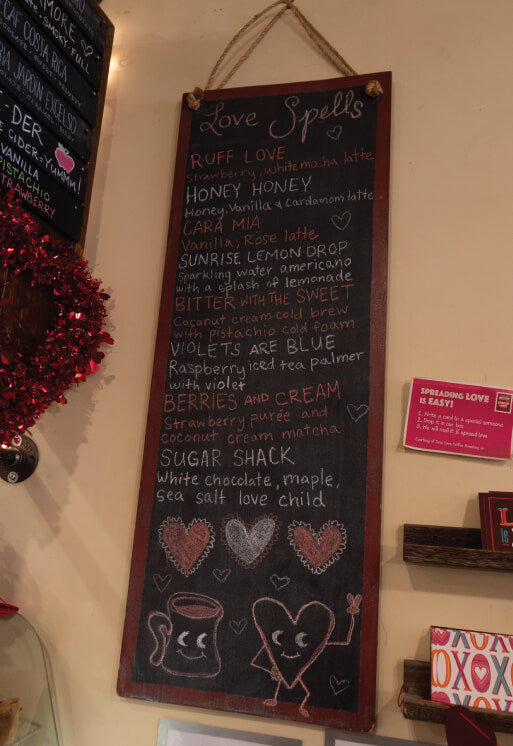 MORE
SMOKY, FULL
DECAF COSTA RICA
JARDIN EXCELSO
DER
CIDER = Yummy!
VANILLA
PISTACHIO
STRAWBERRY
Love Spells
RUFF LOVE
Strawberry, white mocha latte
HONEY HONEY
Honey, Vanilla & Cardamom latte
CARA MIA
Vanilla, Rose latte
SUNRISE LEMON DROP
Sparkling water americano
with a splash of lemonade
BITTER WITH THE SWEET
Coconut cream cold brew
with Pistachio cold foam
VIOLETS ARE BLUE
Raspberry iced tea palmer
with violet
BERRIES AND CREAM
Strawberry purée and
coconut cream matcha
SUGAR SHACK
White chocolate, maple,
sea salt love child
SPREADING LOVE
IS EASY!
1. Write a card to a special someone
2. Drop it in our box
3. We will mail it & spread love
XOXO
OXOX